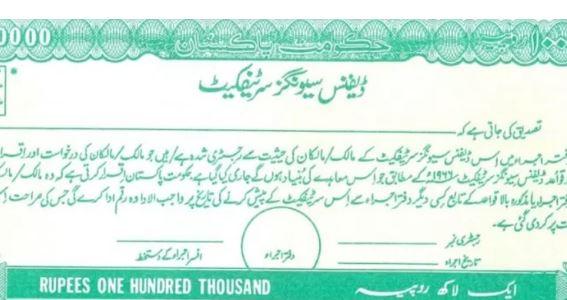 0000 حکومت پاکستان ۱۰۰
ڈیفنس سیونگز سرٹیفکیٹ
تصدیق کی جاتی ہے کہ
اجراء میں اس ڈیفنس سیونگز سرٹیفکیٹ کے مالک/مالکان کی حیثیت سے رجسٹری شدہ ہے/ہیں جو مالک/مالکان کی درخواست اور اقرار
قواعد ڈیفنس سیونگز سرٹیفکیٹ ۱۹۶۶ء کے مطابق جو اس معاہدے کی بنیاد ہوں گے جاری کیا گیا ہے حکومت پاکستان اقرار کرتی ہے کہ وہ مالک/
اجراء یا مذکورہ بالا قواعد کے تابع کسی دیگر دفتر اجراء سے اس سرٹیفکیٹ کے پیش کرنے کی تاریخ پر واجب الادا وہ رقم ادا کرے گی جس کی صراحت
پر کر دی گئی ہے۔
رجسٹری نمبر
تاریخ اجراء
دفتر اجراء
افسر اجراء کے دستخط
RUPEES ONE HUNDRED THOUSAND ایک لاکھ روپیہ